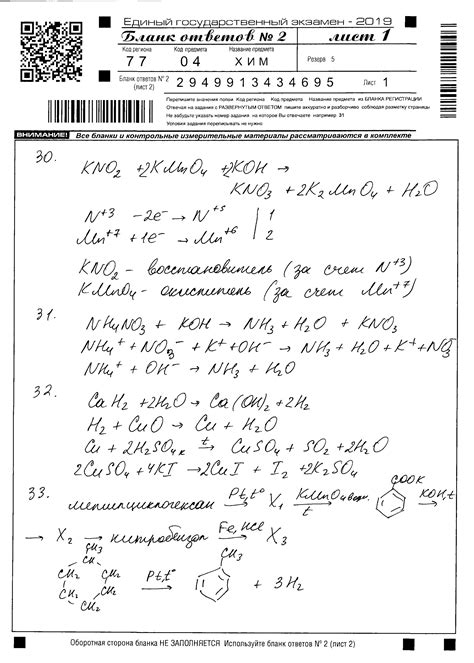 Единый государственный экзамен - 2019
Бланк ответов № 2 лист 1
Код региона Код предмета Название предмета
77 04 ХИМ Резерв 5
Бланк ответов № 2 (лист 2) 2949913434695 Лист 1
Перепишите значения полей Код региона Код предмета Название предмета из БЛАНКА РЕГИСТРАЦИИ
Отвечая на задания с РАЗВЕРНУТЫМ ОТВЕТОМ пишите аккуратно и разборчиво соблюдая разметку страницы
Не забудьте указать номер задания на которое Вы отвечаете например 31
Условия задания переписывать не нужно
ВНИМАНИЕ! Все бланки и контрольные измерительные материалы рассматриваются в комплекте
30. KNO2 + 2KMnO4 + 2KOH →
KNO3 + 2K2MnO4 + H2O
N+3 - 2e- → N+5 | 1
Mn+7 + 1e- → Mn+6 | 2
KNO2 - восстановитель (за счет N+3)
KMnO4 - окислитель (за счет Mn+7)
31. NH4NO3 + KOH → NH3 + H2O + KNO3
NH4+ + NO3- + K+ + OH- → NH3 + H2O + K+ + NO3-
NH4+ + OH- → NH3 + H2O
32. CaH2 + 2H2O → Ca(OH)2 + 2H2
H2 + CuO → Cu + H2O
Cu + 2H2SO4к t→ CuSO4 + SO2 + 2H2O
2CuSO4 + 4KI → 2CuI + I2 + 2K2SO4
33. метилциклогексан Pt,t°→ X1 KMnO4 водн. t→ COOK KOH,t
→ X2 → нитробензол Fe, HCl→ X3
CH3
CH CH3
CH2 CH2
CH2 CH2
CH2
Pt,t°→ + 3H2
Оборотная сторона бланка НЕ ЗАПОЛНЯЕТСЯ Используйте бланк ответов № 2 (лист 2)